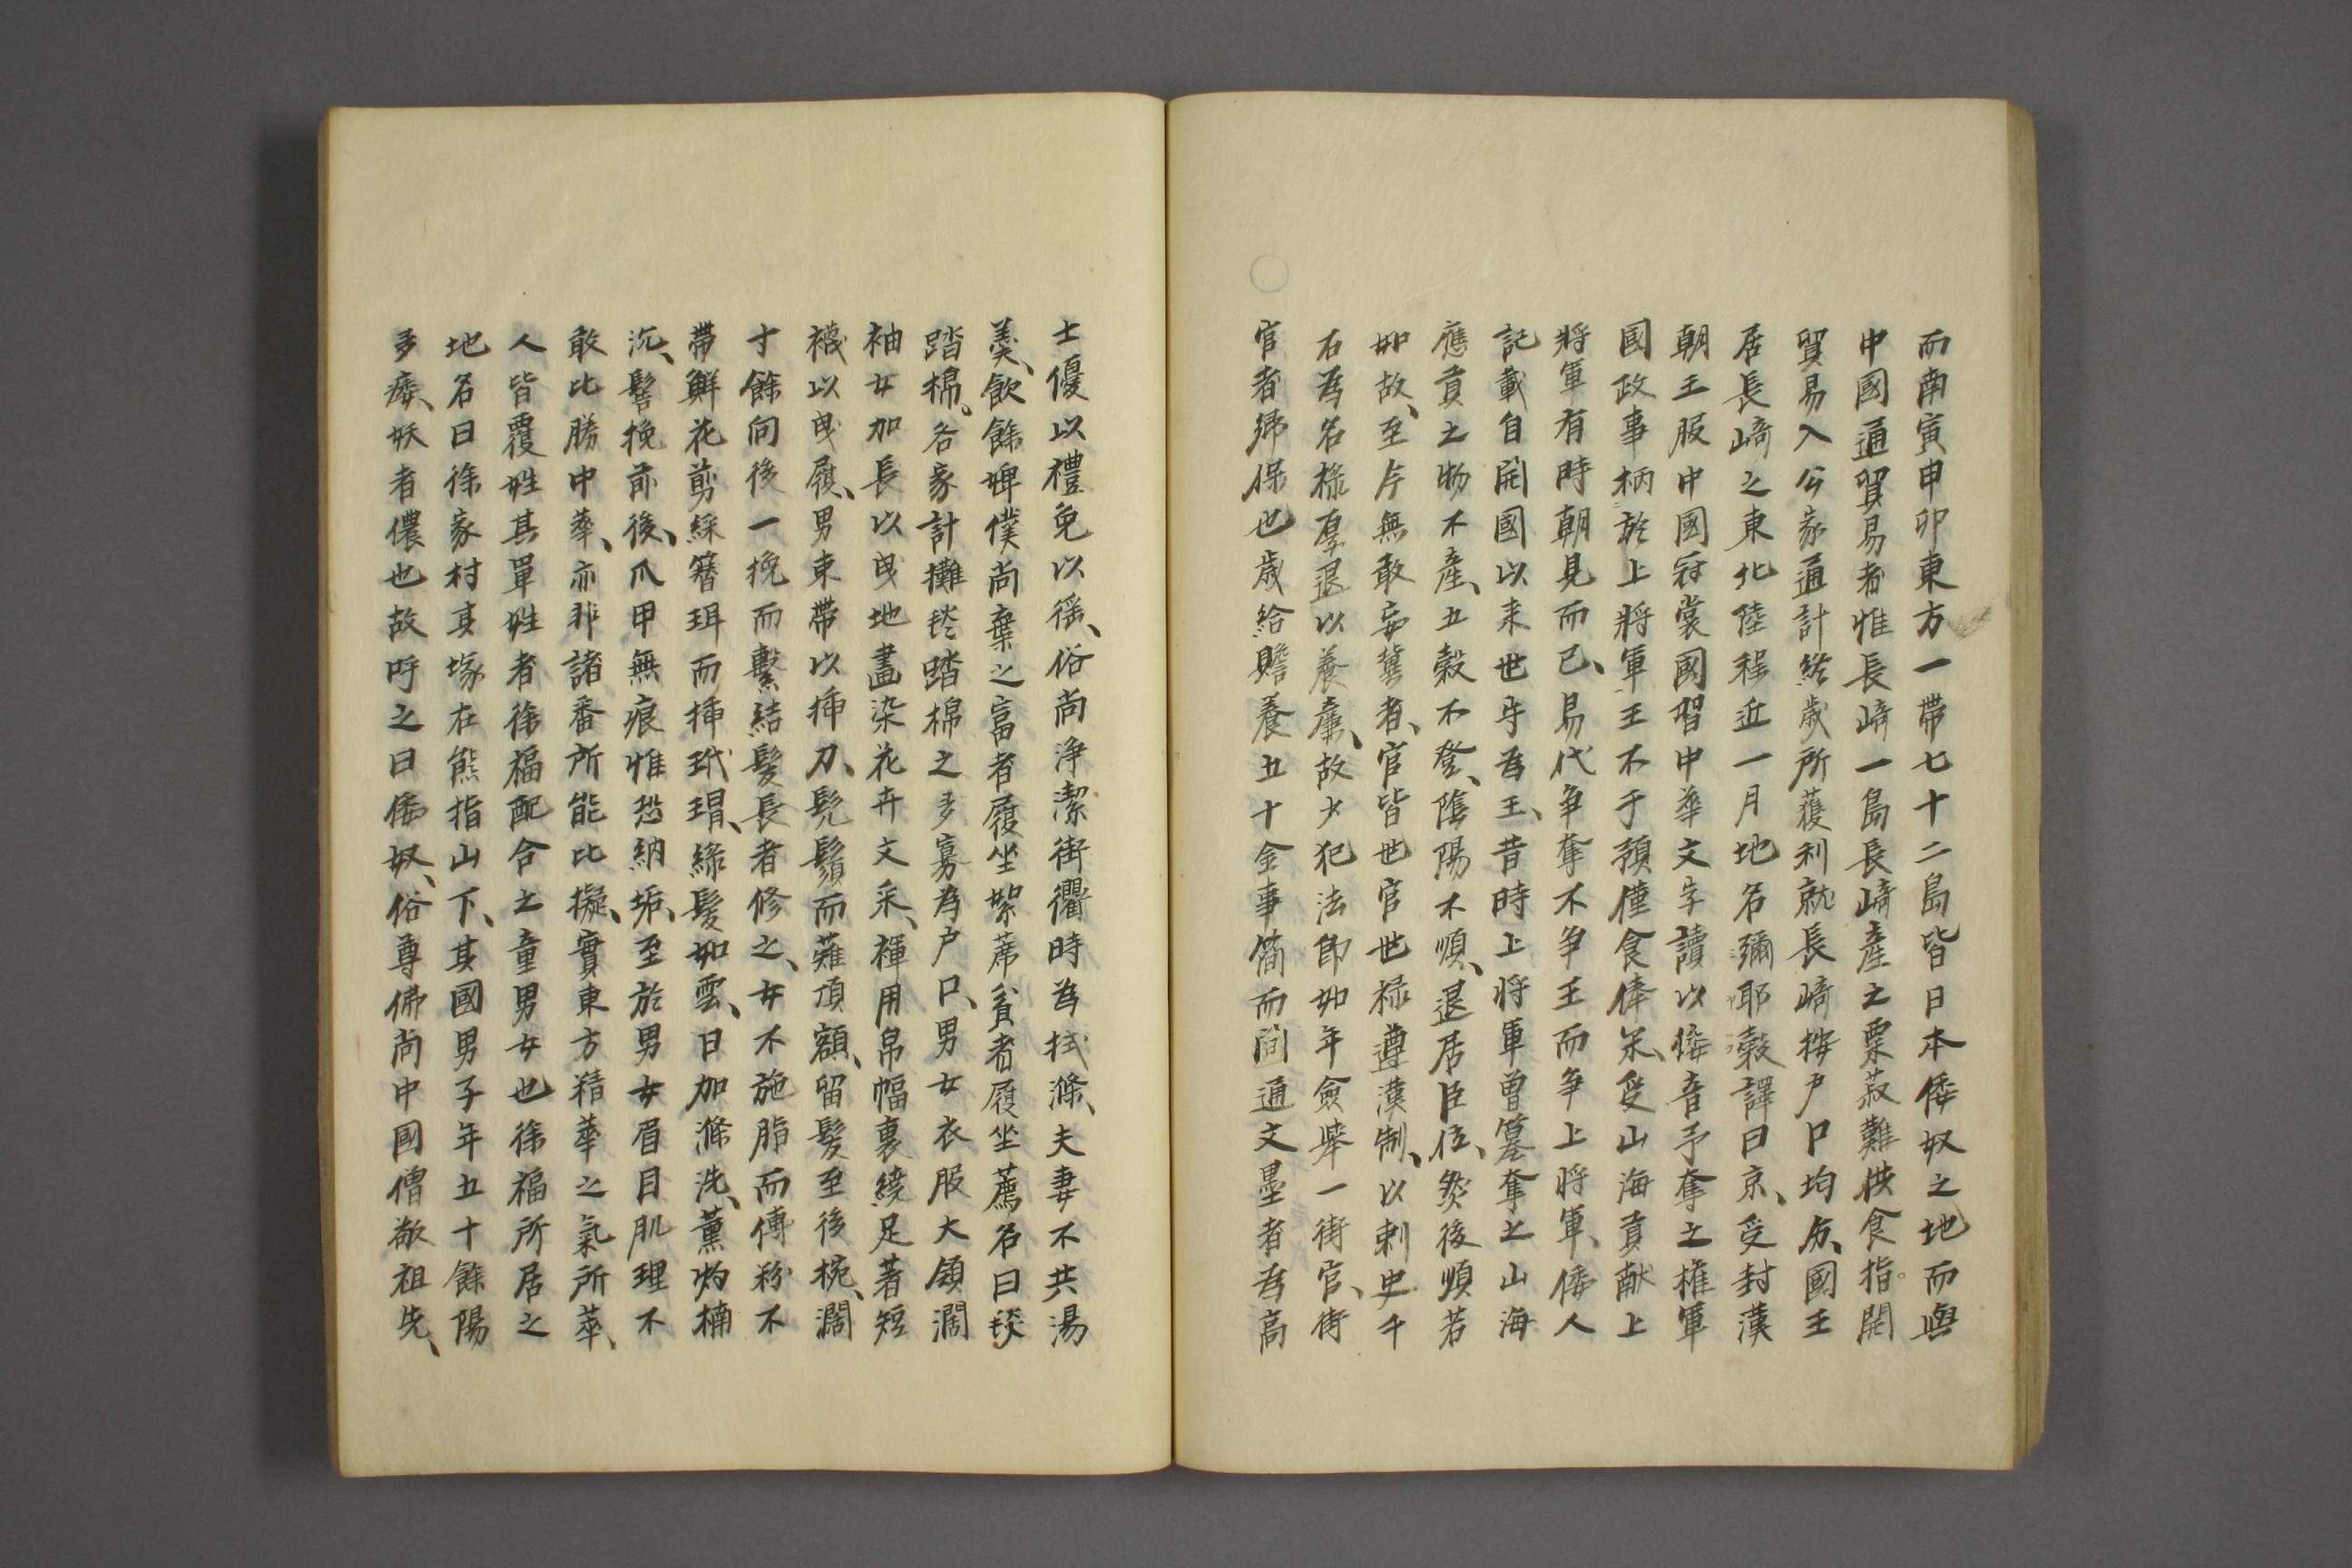 而南寅申卯東方一帶七十二島皆日本倭奴之地而與
中國通貿易者惟長﨑一島長﨑產之粟菽難供食指開
貿易入公家通計終歲所獲利就長﨑按户口均分、國王
居長﨑之東北陸程近一月地名彌耶穀譯曰京、受封漢
朝王服中國冠裳國習中華文字讀以倭音予奪之權軍
國政事柄於上將軍王不于預僅食俸米、受山海貢獻上
將軍有時朝見而已、易代争奪不争王而争上將軍、倭人
記載自開國以来世守為王、昔時上將軍曽篡奪之山海
應貢之物不產、五穀不登、陰陽不順、退居臣位、然後順若
如故、至今無敢妄冀者、官皆世官世禄遵漢制、以刺史千
石為名祿厚退以養廉、故少犯法即如年僉舉一街官、街
官者鄉保也歲給贍養五十金事簡而閒通文墨者為高
士優以禮免以徭、俗尚浄潔街衢時為拭滌、夫妻不共湯
羹、飲餘婢僕尚棄之富者履坐絮蓆貧者履坐薦名曰毯
踏棉。各家計攤毯踏棉之多寡為户口、男女衣服大領濶
袖女加長以曳地畫染花卉文采、褌用帛幅裏繞足著短
襪以曳履、男束帶以插刀、髡鬚而薙頂額、留髮至後椀、濶
寸餘向後一挽而繫結髮長者修之、女不施脂而傅粉不
帶鮮花剪綵簪珥而插玳瑁、綠髮如雲、日加滌洗、薰灼楠
沉、髻挽前後、爪甲無痕惟恐納垢、至於男女眉目肌理不
敢比勝中華、亦非諸番所能比擬、實東方精華之氣所萃、
人皆覆姓其單姓者徐福配合之童男女也徐福所居之
地名曰徐家村其塚在熊指山下、其國男子年五十餘陽
多痿、妖者儂也故呼之曰倭奴、俗尊佛尚中國僧敬祖先、